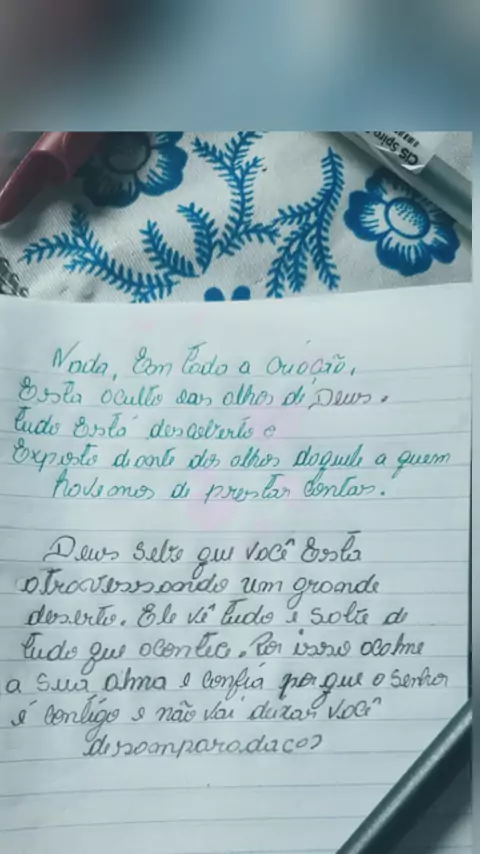 CIS Spiro
Nada, Em toda a criação,
Esta oculto aos olhos de Deus.
tudo Está descoberto e
Exposto diante dos olhos daquele a quem
havemos de prestar contas.
Deus sabe que você Esta
atravessando um grande
deserto. Ele vê tudo e sabe de
tudo que acontece. Por isso acalme
a sua alma e confia porque o Senhor
é contigo e não vai deixar você
desamparada(o)